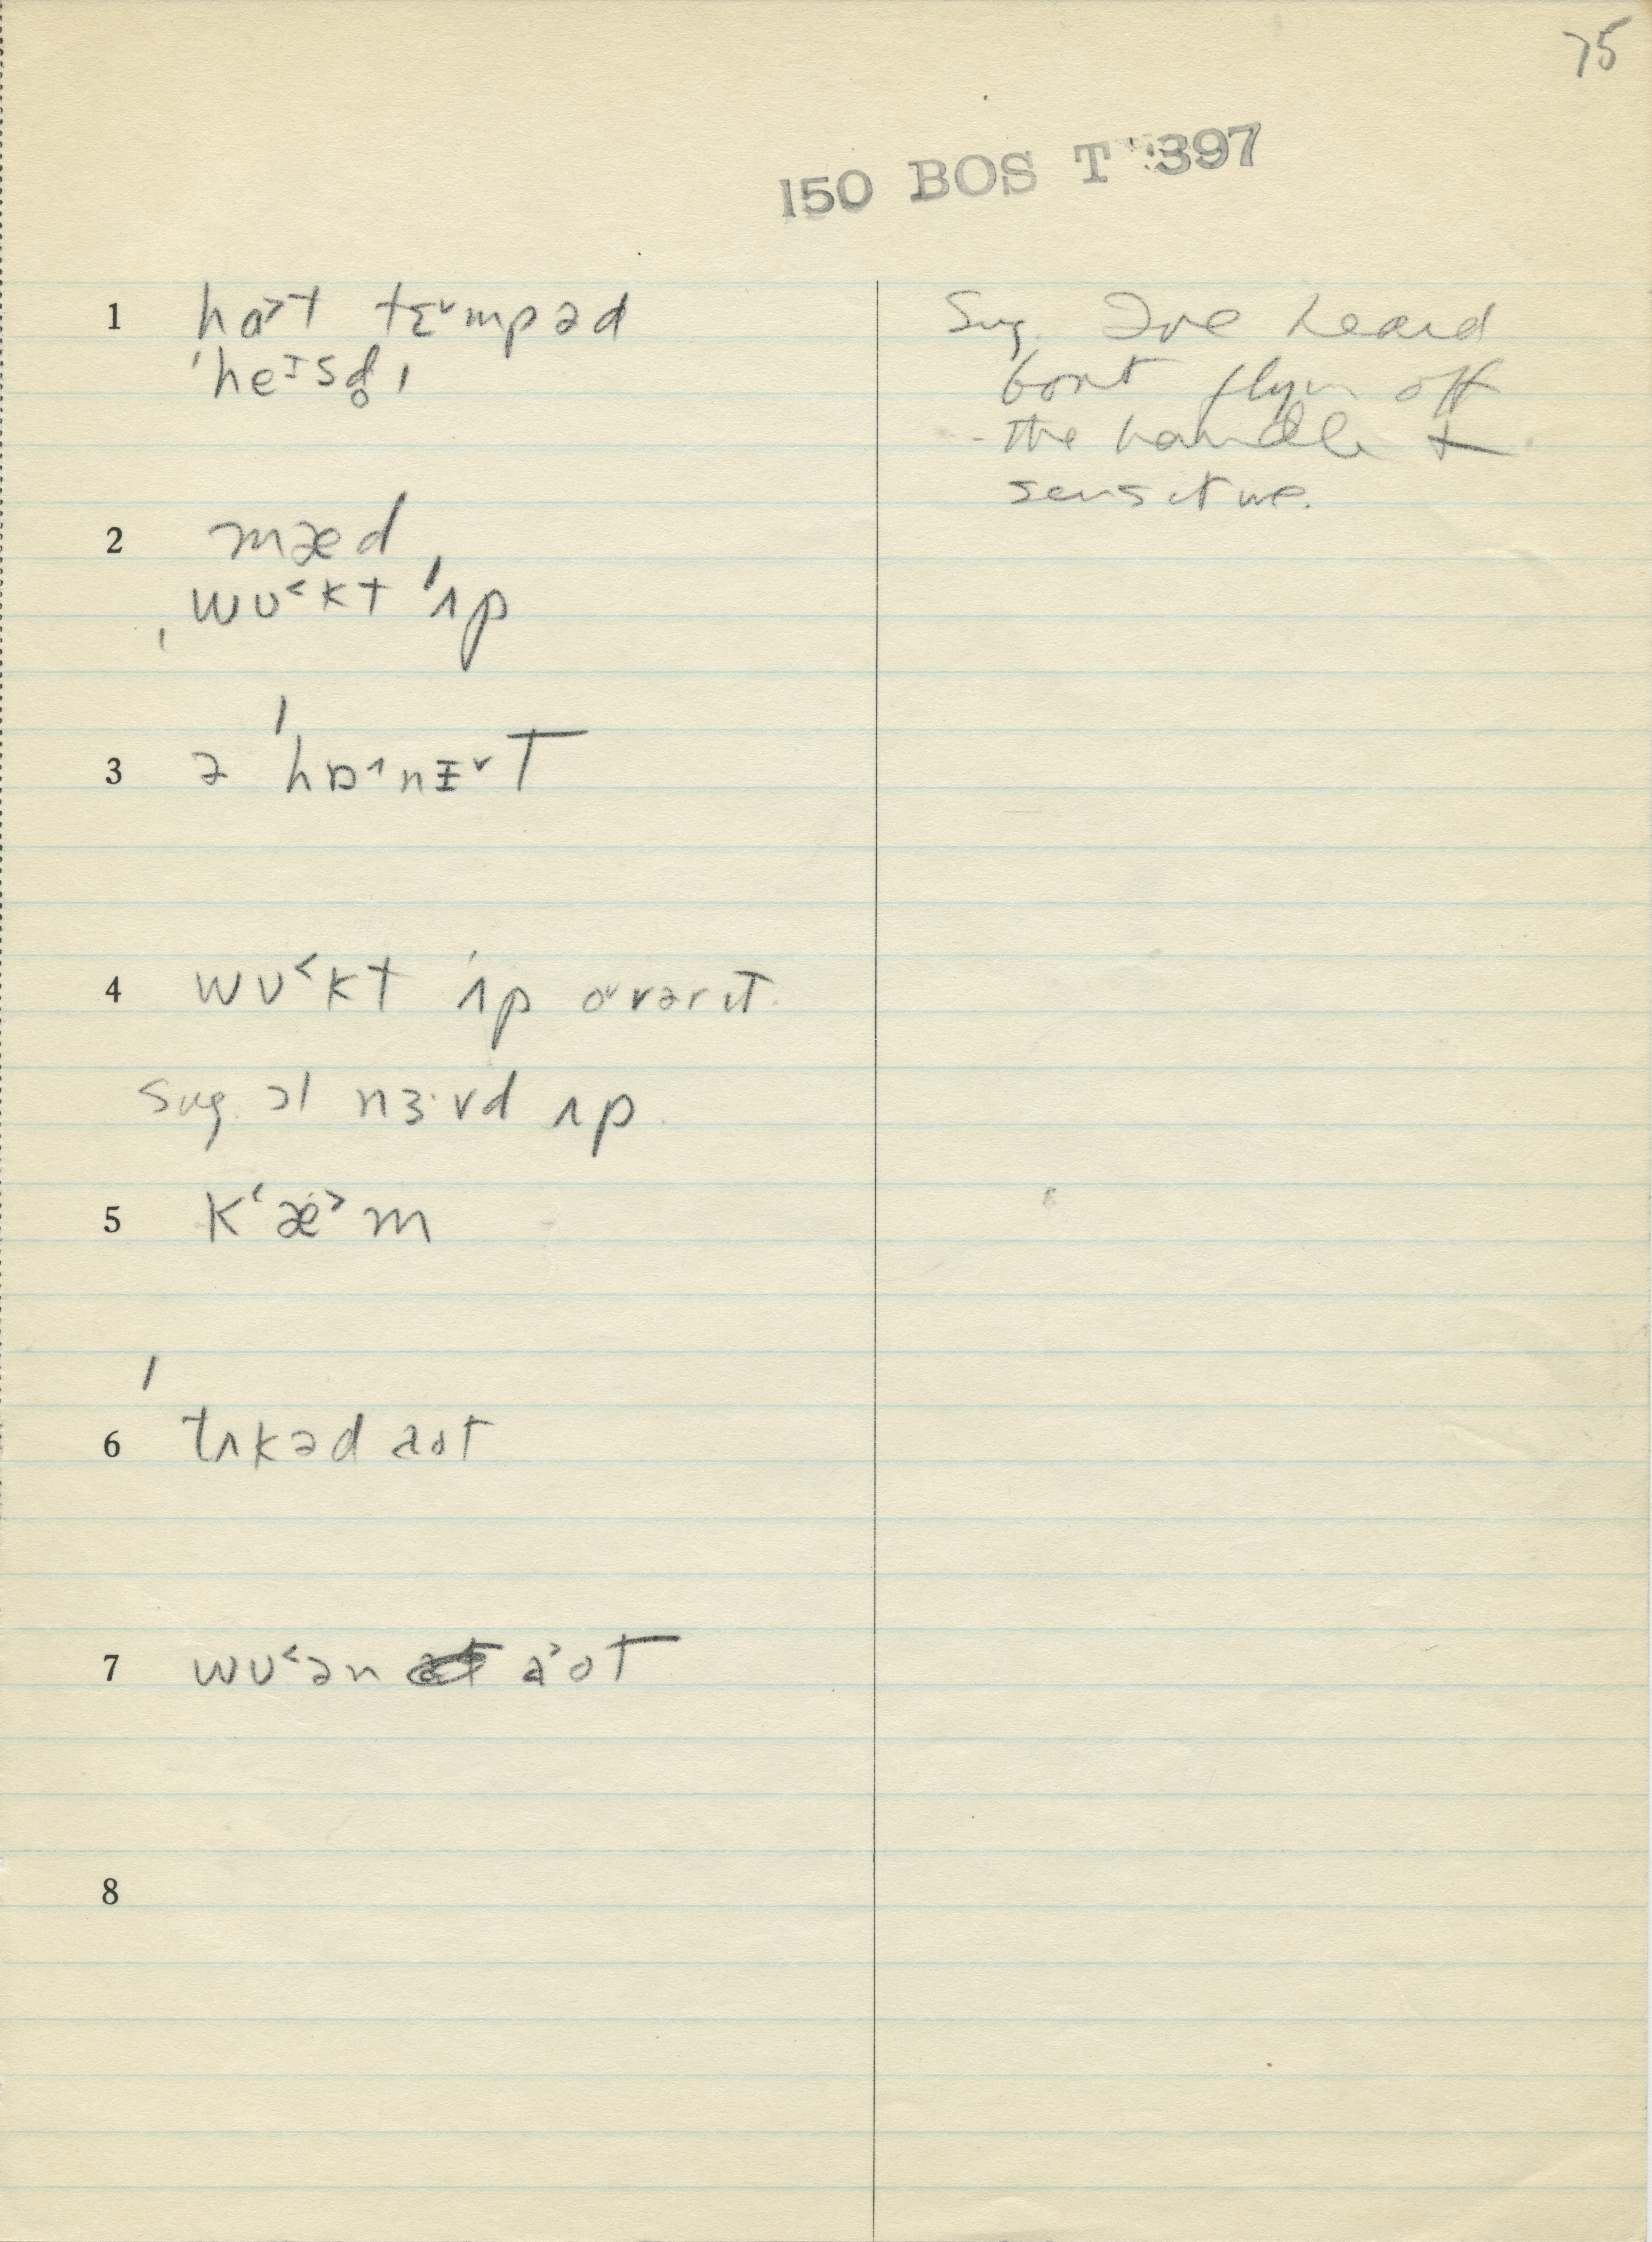 75
150 BOS T 397
1 hɑ˃t tɛ˅mpəd
ˈheɪsd̥ɪ
2 mæd
ˌwʊ˂kt ˈʌp
3 ə ˈhɒ˄nɪ˅t
4 wʊ˂kt ˈʌp o˅vərɪt.
Sug. əl nɜ·vd ʌp.
5 kʻæ˃m
6 ˈtʌkəd aot
7 wʊ˂ən a˃ot
8
Sug. I've heard
bout flyin off
the handle +
sensitive.